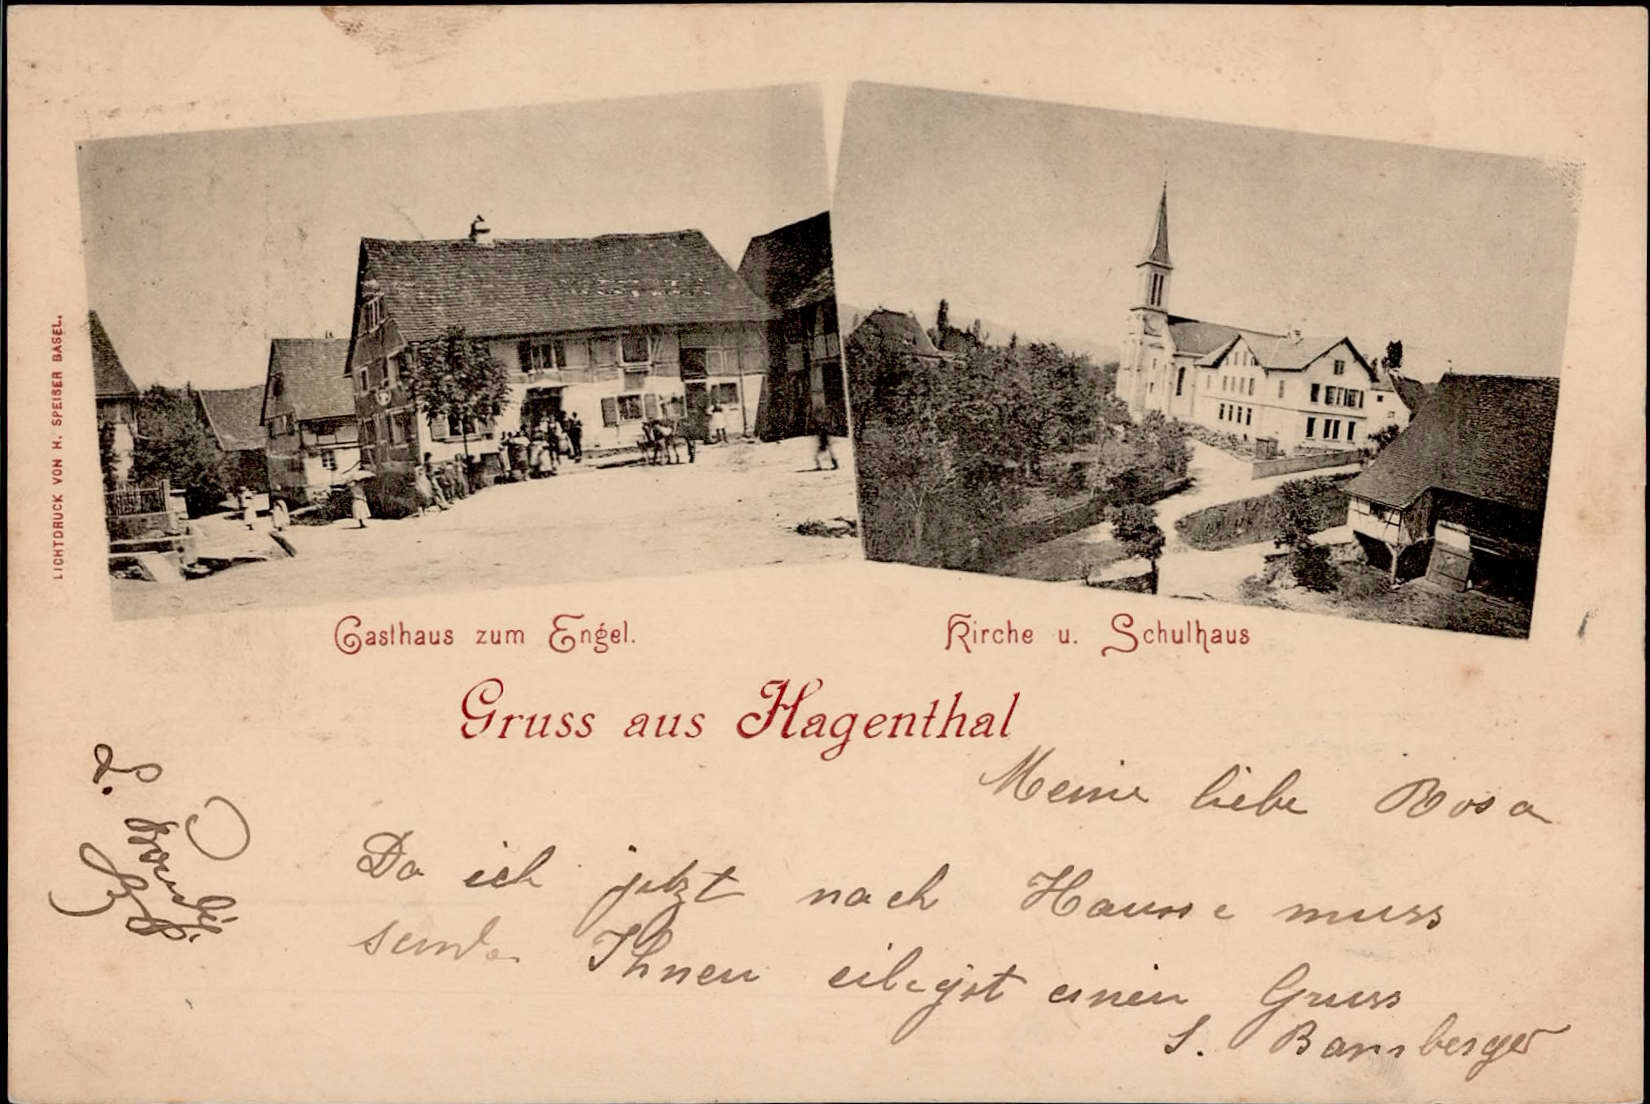 LICHTDRUCK VON H. SPEISER BASEL.
Gasthaus zum Engel.
Kirche u. Schulhaus
Gruss aus Hagenthal
Meine liebe Rosa
Da ich jetzt nach Hause muss
sende Ihnen eiligst einen Gruss
S. Bamberger